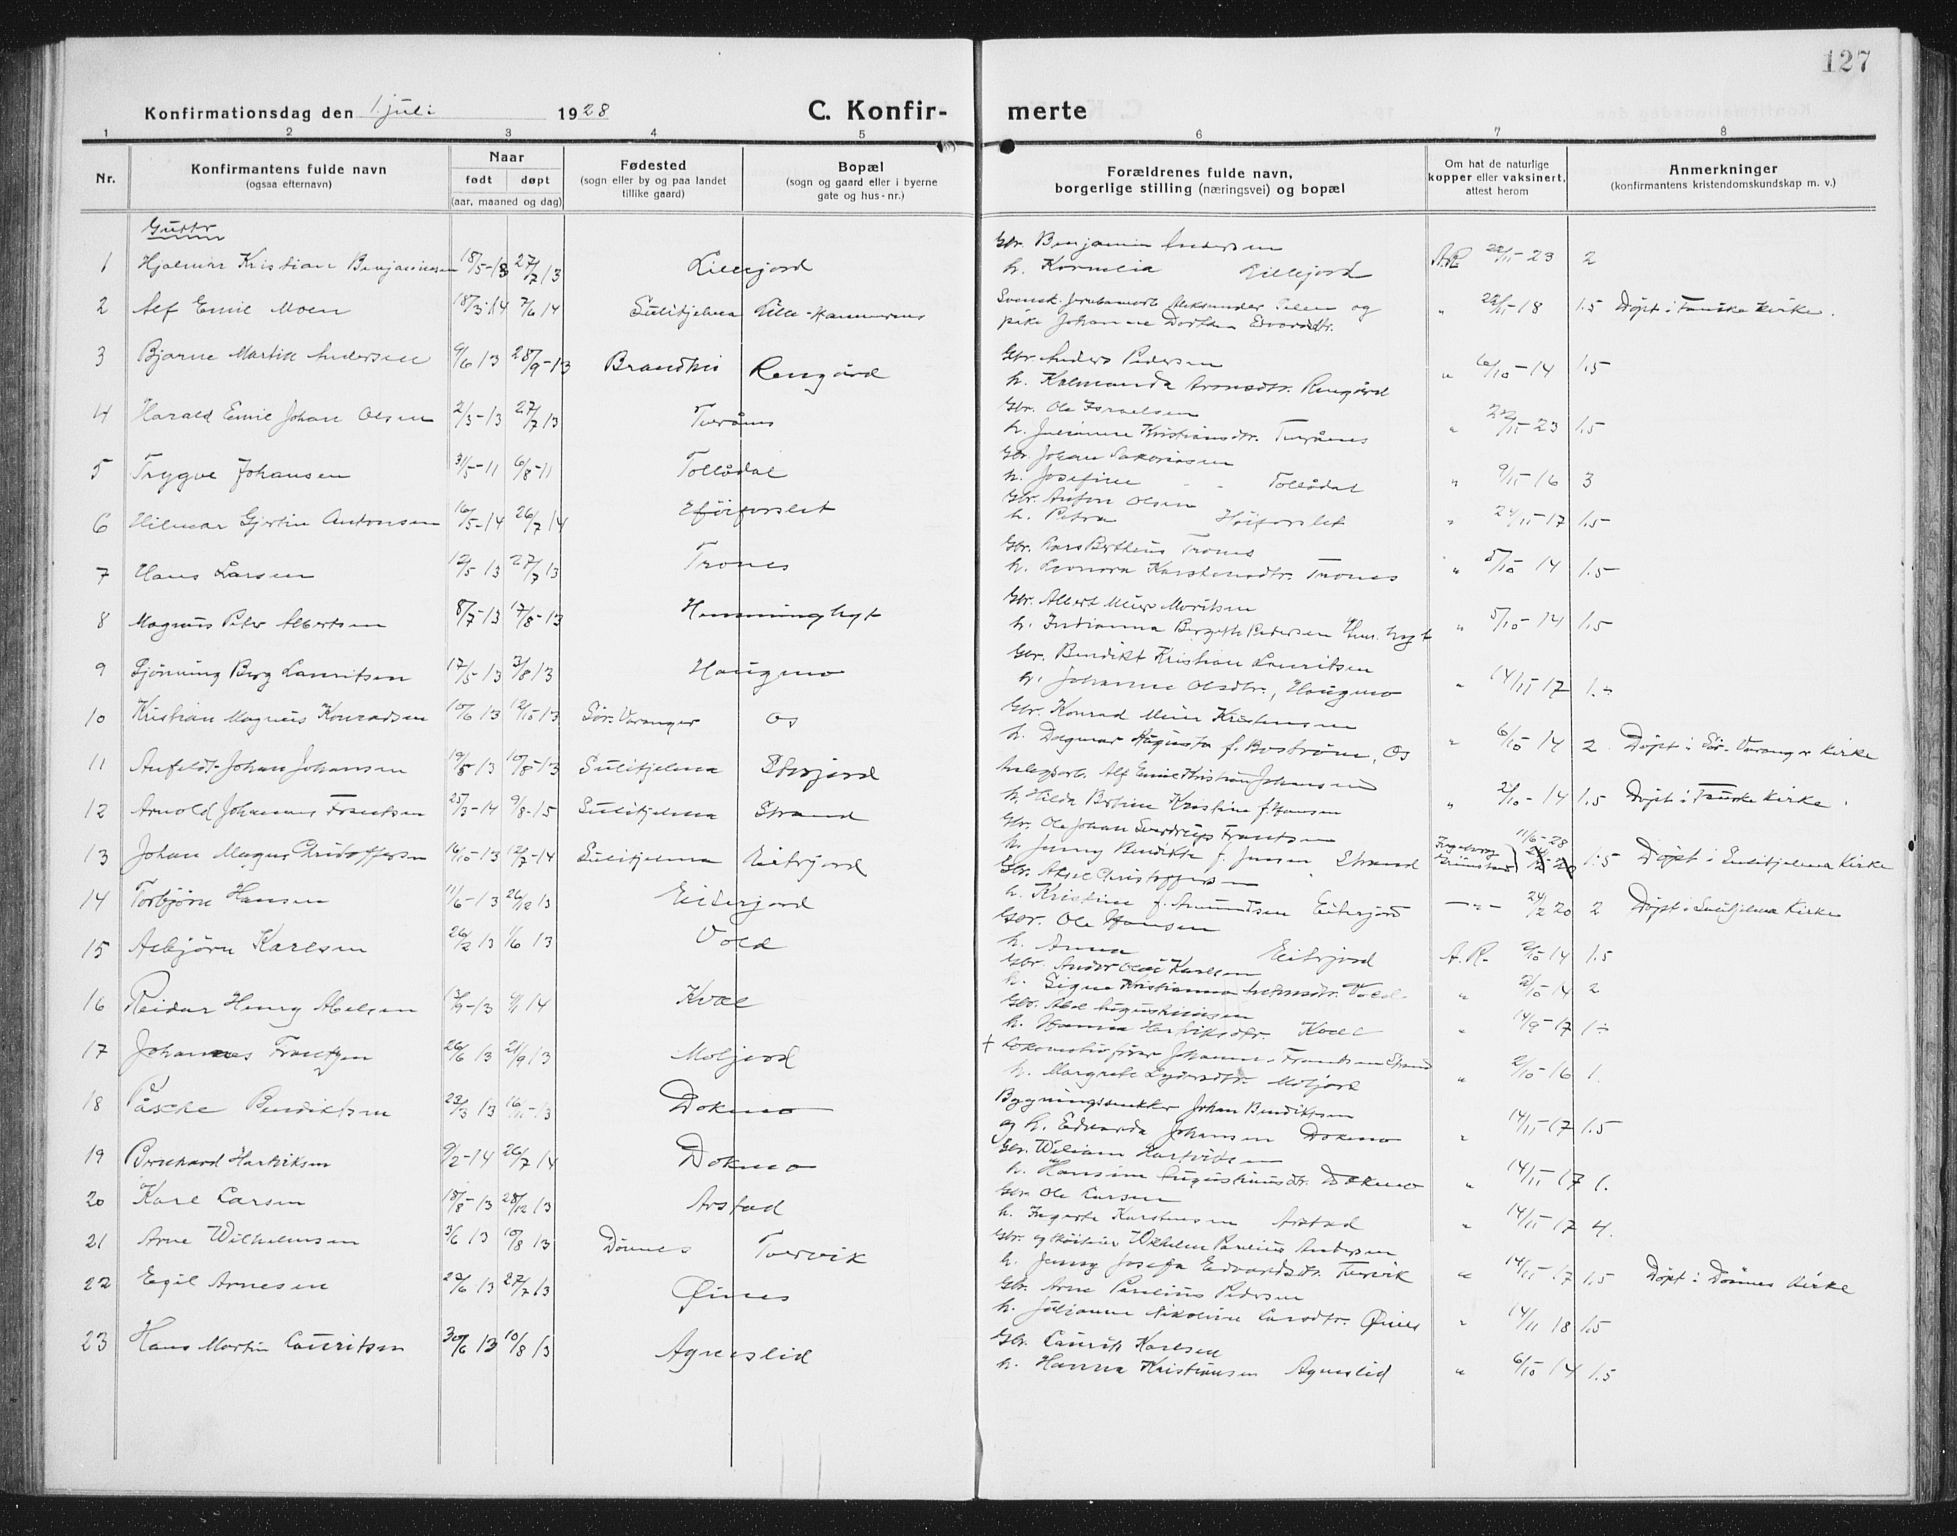 127
Konfirmationsdag den 1 juli 1928 C. Konfir- merte
1 2 3 4 5 6 7 8
Nr. Konfirmantens fulde navn (ogsaa efternavn) Naar født døpt (aar, maaned og dag) Fødested (sogn eller by og paa landet tillike gaard) Bopæl (sogn og gaard eller i byerne gate og hus-nr.) Forældrenes fulde navn, borgerlige stilling (næringsvei) og bopæl Om hat de naturlige kopper eller vaksinert, attest herom Anmerkninger (konfirmantens kristendomskundskap m. v.)
Gutter
Gbr. Benjamin Andersen
1 Hjalmar Kristian Benjaminsen 18/5-13 27/7 13 Lillejord h. Kornelia Lillejord A.R. 22/11-23 2
2 Alf Emil Moen 18/3 14 7/6 14 Sulitjelma Lille-Hammernes
pike Johanne Dorthea Edvardsdtr. " 22/11-18 1.5 Døpt i Fauske Kirke.
3 Bjarne Martin Andersen 9/6 13 28/9-13 Rengård Gbr. Anders Pedersen
h. Kalmanda Aronsdtr. Rengård " 6/10-14 1.5
4 Harald Emil Johan Olsen 2/3-13 27/7 13 Tverånes Gbr. Ole Israelsen
h. Julianne Kristiansdtr. Tverånes " 22/11-23 1.5
5 Trygve Johansen 31/5-11 6/8-11 Tollådal Gbr Johan Sakariassen
h. Josefine Tollådal " 9/11-16 3
6 Hilmar Gjertin Antonsen 16/5-14 26/7 14 Gbr. Anton Olsen
h. Petra Høiforslet " 24/11-17 1.5
7 Hans Larsen 12/5 13 27/7 13 Trones Gbr. Lars Bertheus Trones
h. Leonora Karstensdtr. Trones " 5/10 14 1.5
8 Magnus Peder Albertsen 8/7-13 17/8-13 Hemminghyt Gbr. Albert Meier Moritsen
h. Indianna Bergeth Pedersen " 5/10-14 1.5
9 Gjönning Berg Lauritsen 17/5-13 3/8 13 Haugmo Gbr. Bendikt Kristian Lauritsen
h. Johanna Olsdtr., Haugmo " 14/11-17 1.÷
10 Kristian Magnus Konradsen 10/6 13 12/10-13 Sør-Varanger Os Gbr. Konrad Meier Kristensen
h. Dagmar Augusta f. Bostrøm, Os " 6/10 14 2 Døpt i Sør-Varanger Kirke
11 Anfeldt Johan Johansen 19/5 13 10/8-13 Sulitjelma Storjord Anlegsarb. Alf Emil Kristian Johansen
h. Hilda Bertine Kristine f. Hansen " 2/10-14 1.5 Døpt i Fauske Kirke.
12 Arnold Johannes Frantsen 25/3-14 9/8-15 Sulitjelma Strand Gbr. Ole Johan Sverdrup Frantsen
h. Jenny Bendikte f. Jensen Strand 11/6-28 1.5 Døpt i Sulitjelma Kirke
13 Johan Magnus Christoffersen 16/10-13 12/7-14 Sulitjelma Eiterjord Gbr. Aksel Christoffersen
h. Kristine f. Amundsen Eiterjord -"- 24/2 20 2 Døpt i Sulitjelma Kirke
14 Torbjørn Hansen 11/6-13 26/12 13 Eiterjord Gbr. Ole Hansen
h. Anna Eiterjord A.R. 2/10 14 1.5
15 Asbjørn Karlsen 26/2 13 1/6 13 Vold Gbr. Anders Olai Karlsen
h. Signe Kristianna Vold " 2/10-14 2
16 Reidar Henry Abelsen Kvæl Gbr. Abel Augustinussen
h. Hanna Hartviksdtr. Kvæl " 14/9-17 1÷
17 Johannes Frantzen 26/6 13 21/9 13 Moljord + Lokomotivfører Johannes Frantsen Strand
h. Margrete Lydersdtr. Moljord " 2/10-16 1.
18 Påsche Bendiktsen 23/3 13 16/11-13 Dokmo Bygningssnekker Johan Bendiktsen
og h. Edvarda Johansen Dokmo " 14/11-17 1.5
19 Bernhard Hartviksen 9/2-14 26/7 14 Dokmo Gbr. Wiliam Hartviksen
h. Hansine Augustinusdtr. Dokmo " 14/11 17 1.
20 Karl Larsen 18/8-13 28/12 13 Arstad Gbr. Ole Larsen
h. Ingerte Karstensen Arstad " 14/11-17 4.
21 Arne Wilhelmsen 3/6 13 10/8 13 Dønnes Tvervik Gbr. og skötier Wilhelm Paulius Andersen
h. Jenny Josefa Edvardsdtr. Tvervik " 14/11-17 1.5 Døpt i Dønnes Kirke
22 Egil Arnesen 22/6 13 27/7 13 Øines Gbr. Arne Paulius Pedersen
h. Julianne Nikoline Larsdtr. Øines " 14/11 18 1.5
23 Hans Martin Lauritsen 30/6 13 10/8 13 Agneslid Gbr. Laurits Karlsen
h. Hanna Kristiansen Agneslid " 6/10-14 1.5